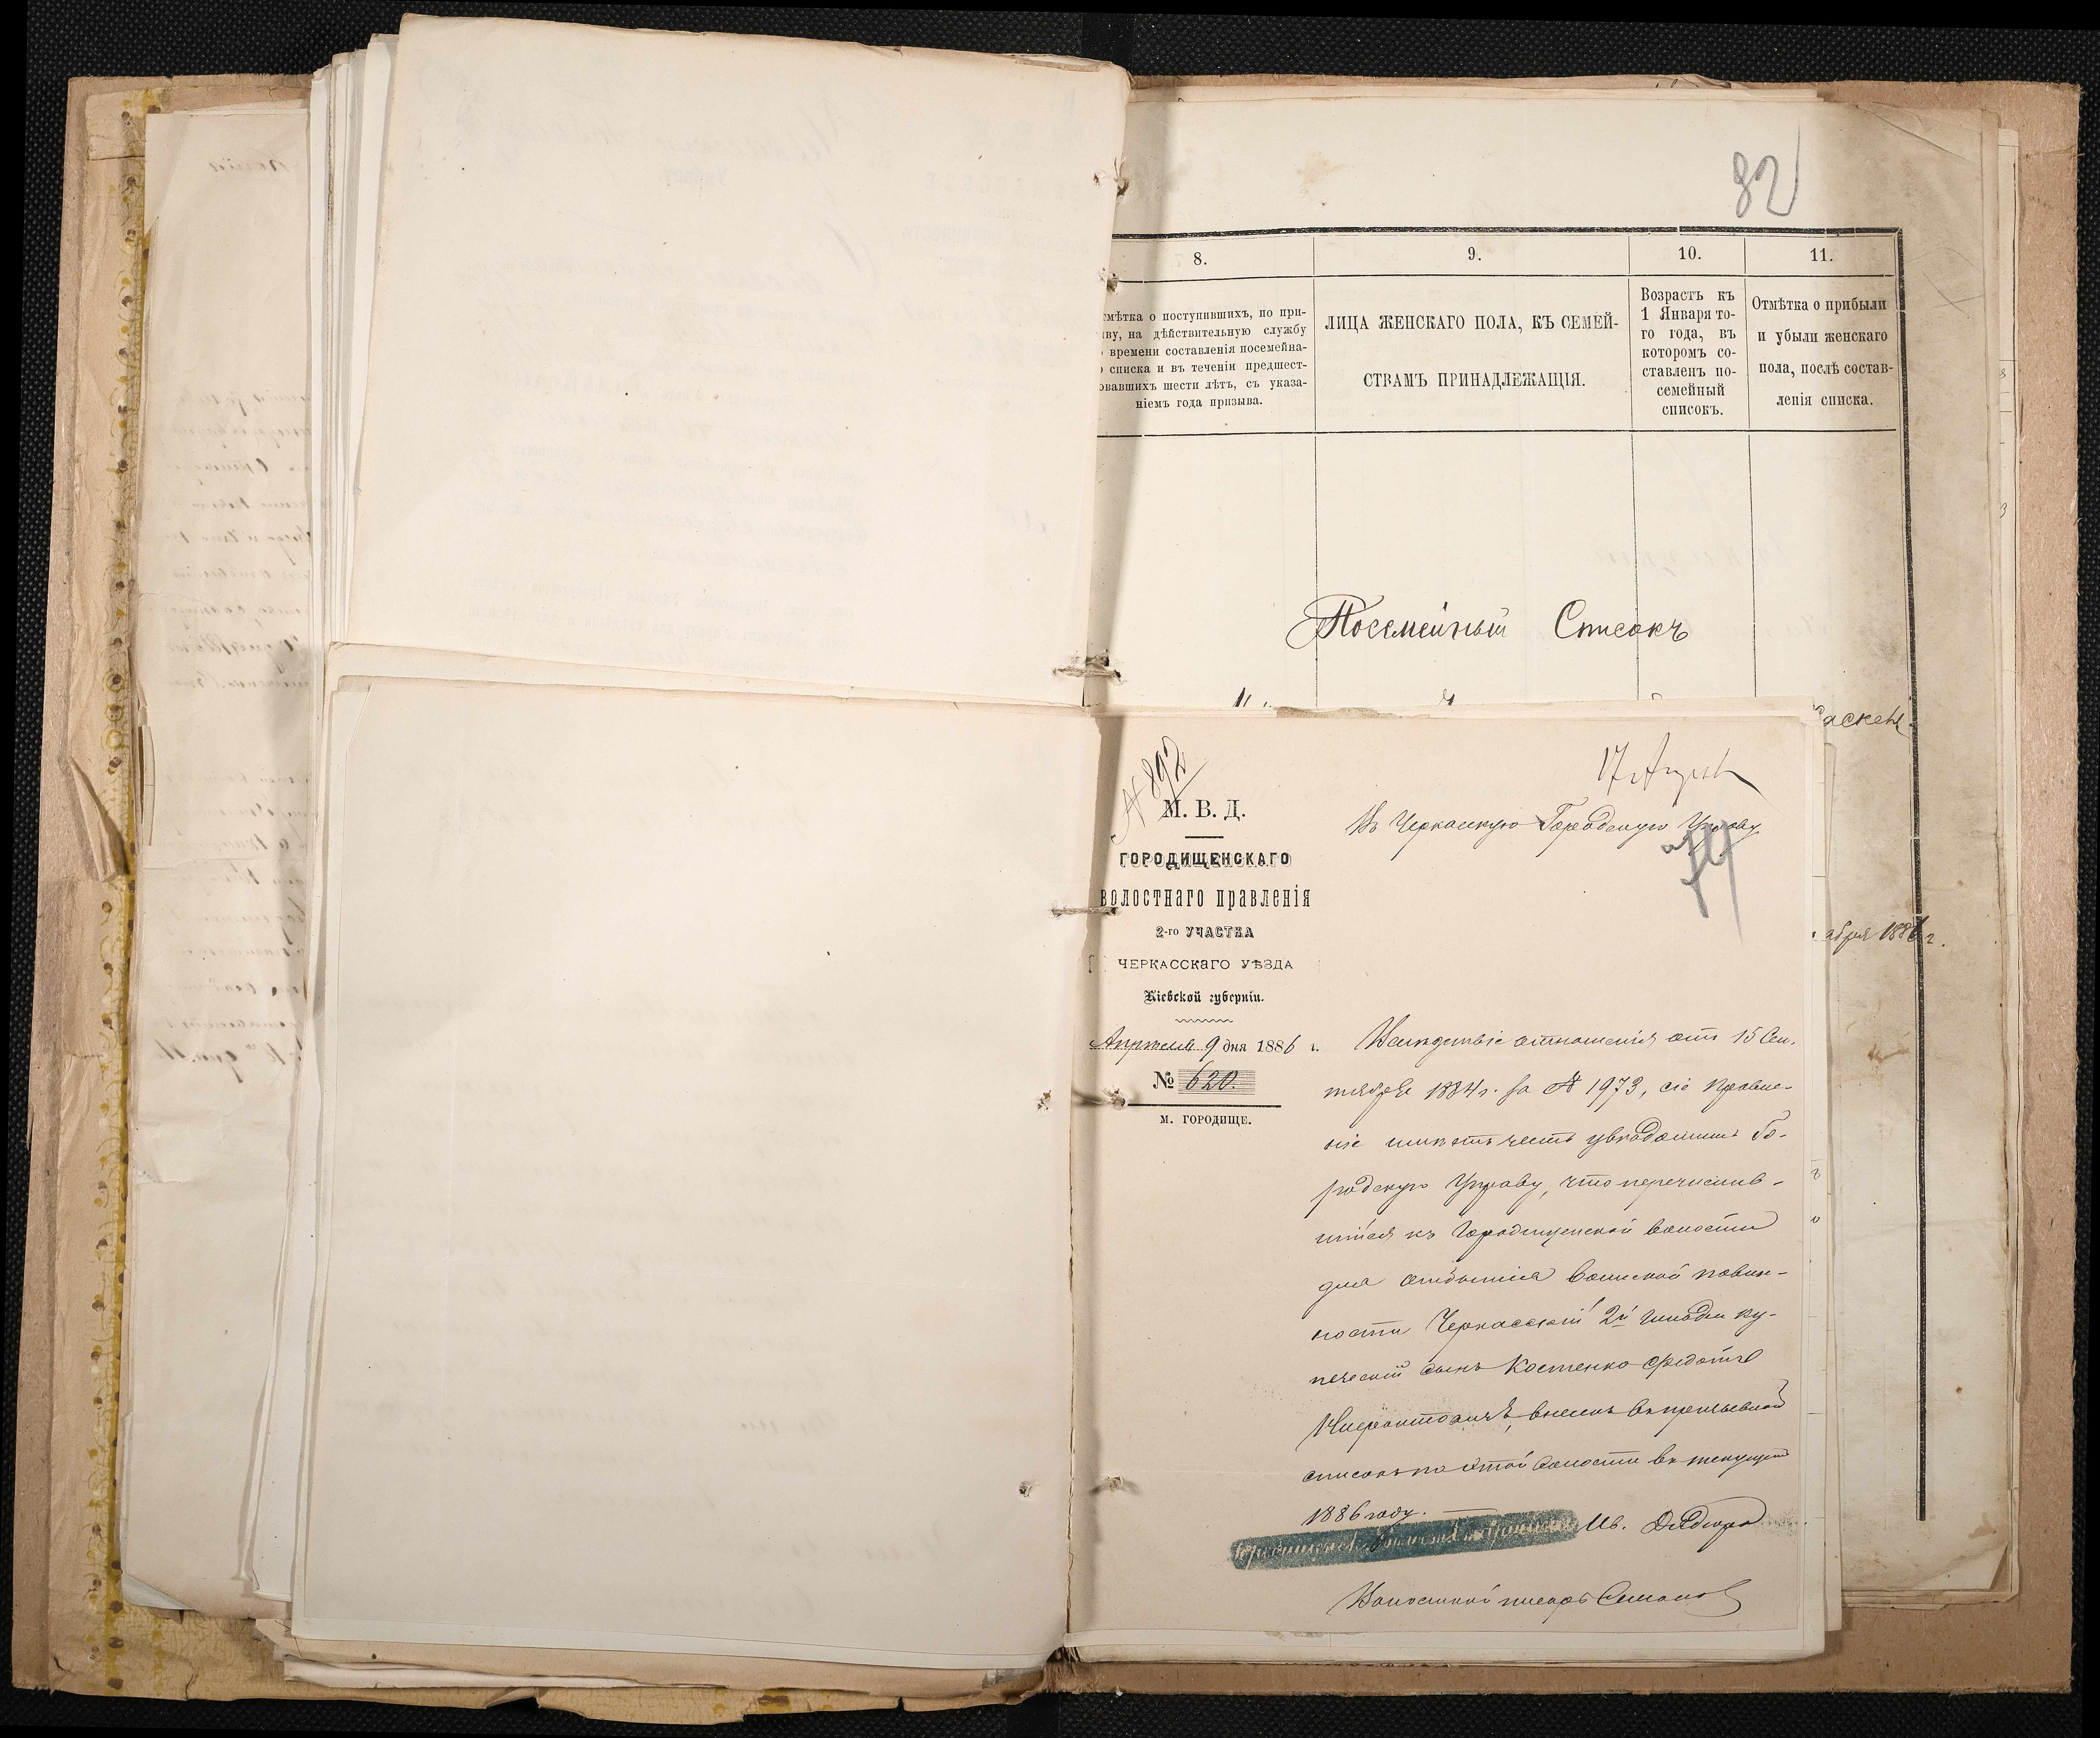 82
8.
9.
10.
11.
мѣтка о поступившихъ, по при-
ву, на дѣйствительную службу
времени составленія посемейна-
списка и въ теченіи предшест-
овавшихъ шести лѣтъ, съ указа-
ніемъ года призыва.
ЛИЦА ЖЕНСКАГО ПОЛА, КЪ СЕМЕЙ-
СТВАМЪ ПРИНАДЛЕЖАЩІЯ.
Возрастъ къ
1 Января то-
го года, въ
которомъ со-
ставленъ по-
семейный
списокъ.
Отмѣтка о прибыли
и убыли женскаго
пола, послѣ состав-
ленія списка.
Посемейный Списокъ
абря 1886 г.
№ 892
М. В. Д.
ГОРОДИЩЕНСКАГО
волостнаго правленія
2-го УЧАСТКА
ЧЕРКАССКАГО УѢЗДА
Кіевской губерніи.
Апрѣля 9 дня 1886 г.
№ 620.
м. ГОРОДИЩЕ.
17 Апрѣля
Въ Черкасскую Городскую Управу
Вслѣдствіе отношенія отъ 15 Сен-
тября 1884 г. за № 1973, сіе Правле-
ніе имѣетъ честь увѣдомить Го-
родскую Управу, что перечислив-
шійся къ Городищенской волости
для отбытія воинской повин-
ности Черкасскій 2й гильдіи ку-
печескій сынъ Костенко
внесенъ въ призывной
списокъ по этой волости въ текущемъ
1886 году.
Ив.
Волостной писарь